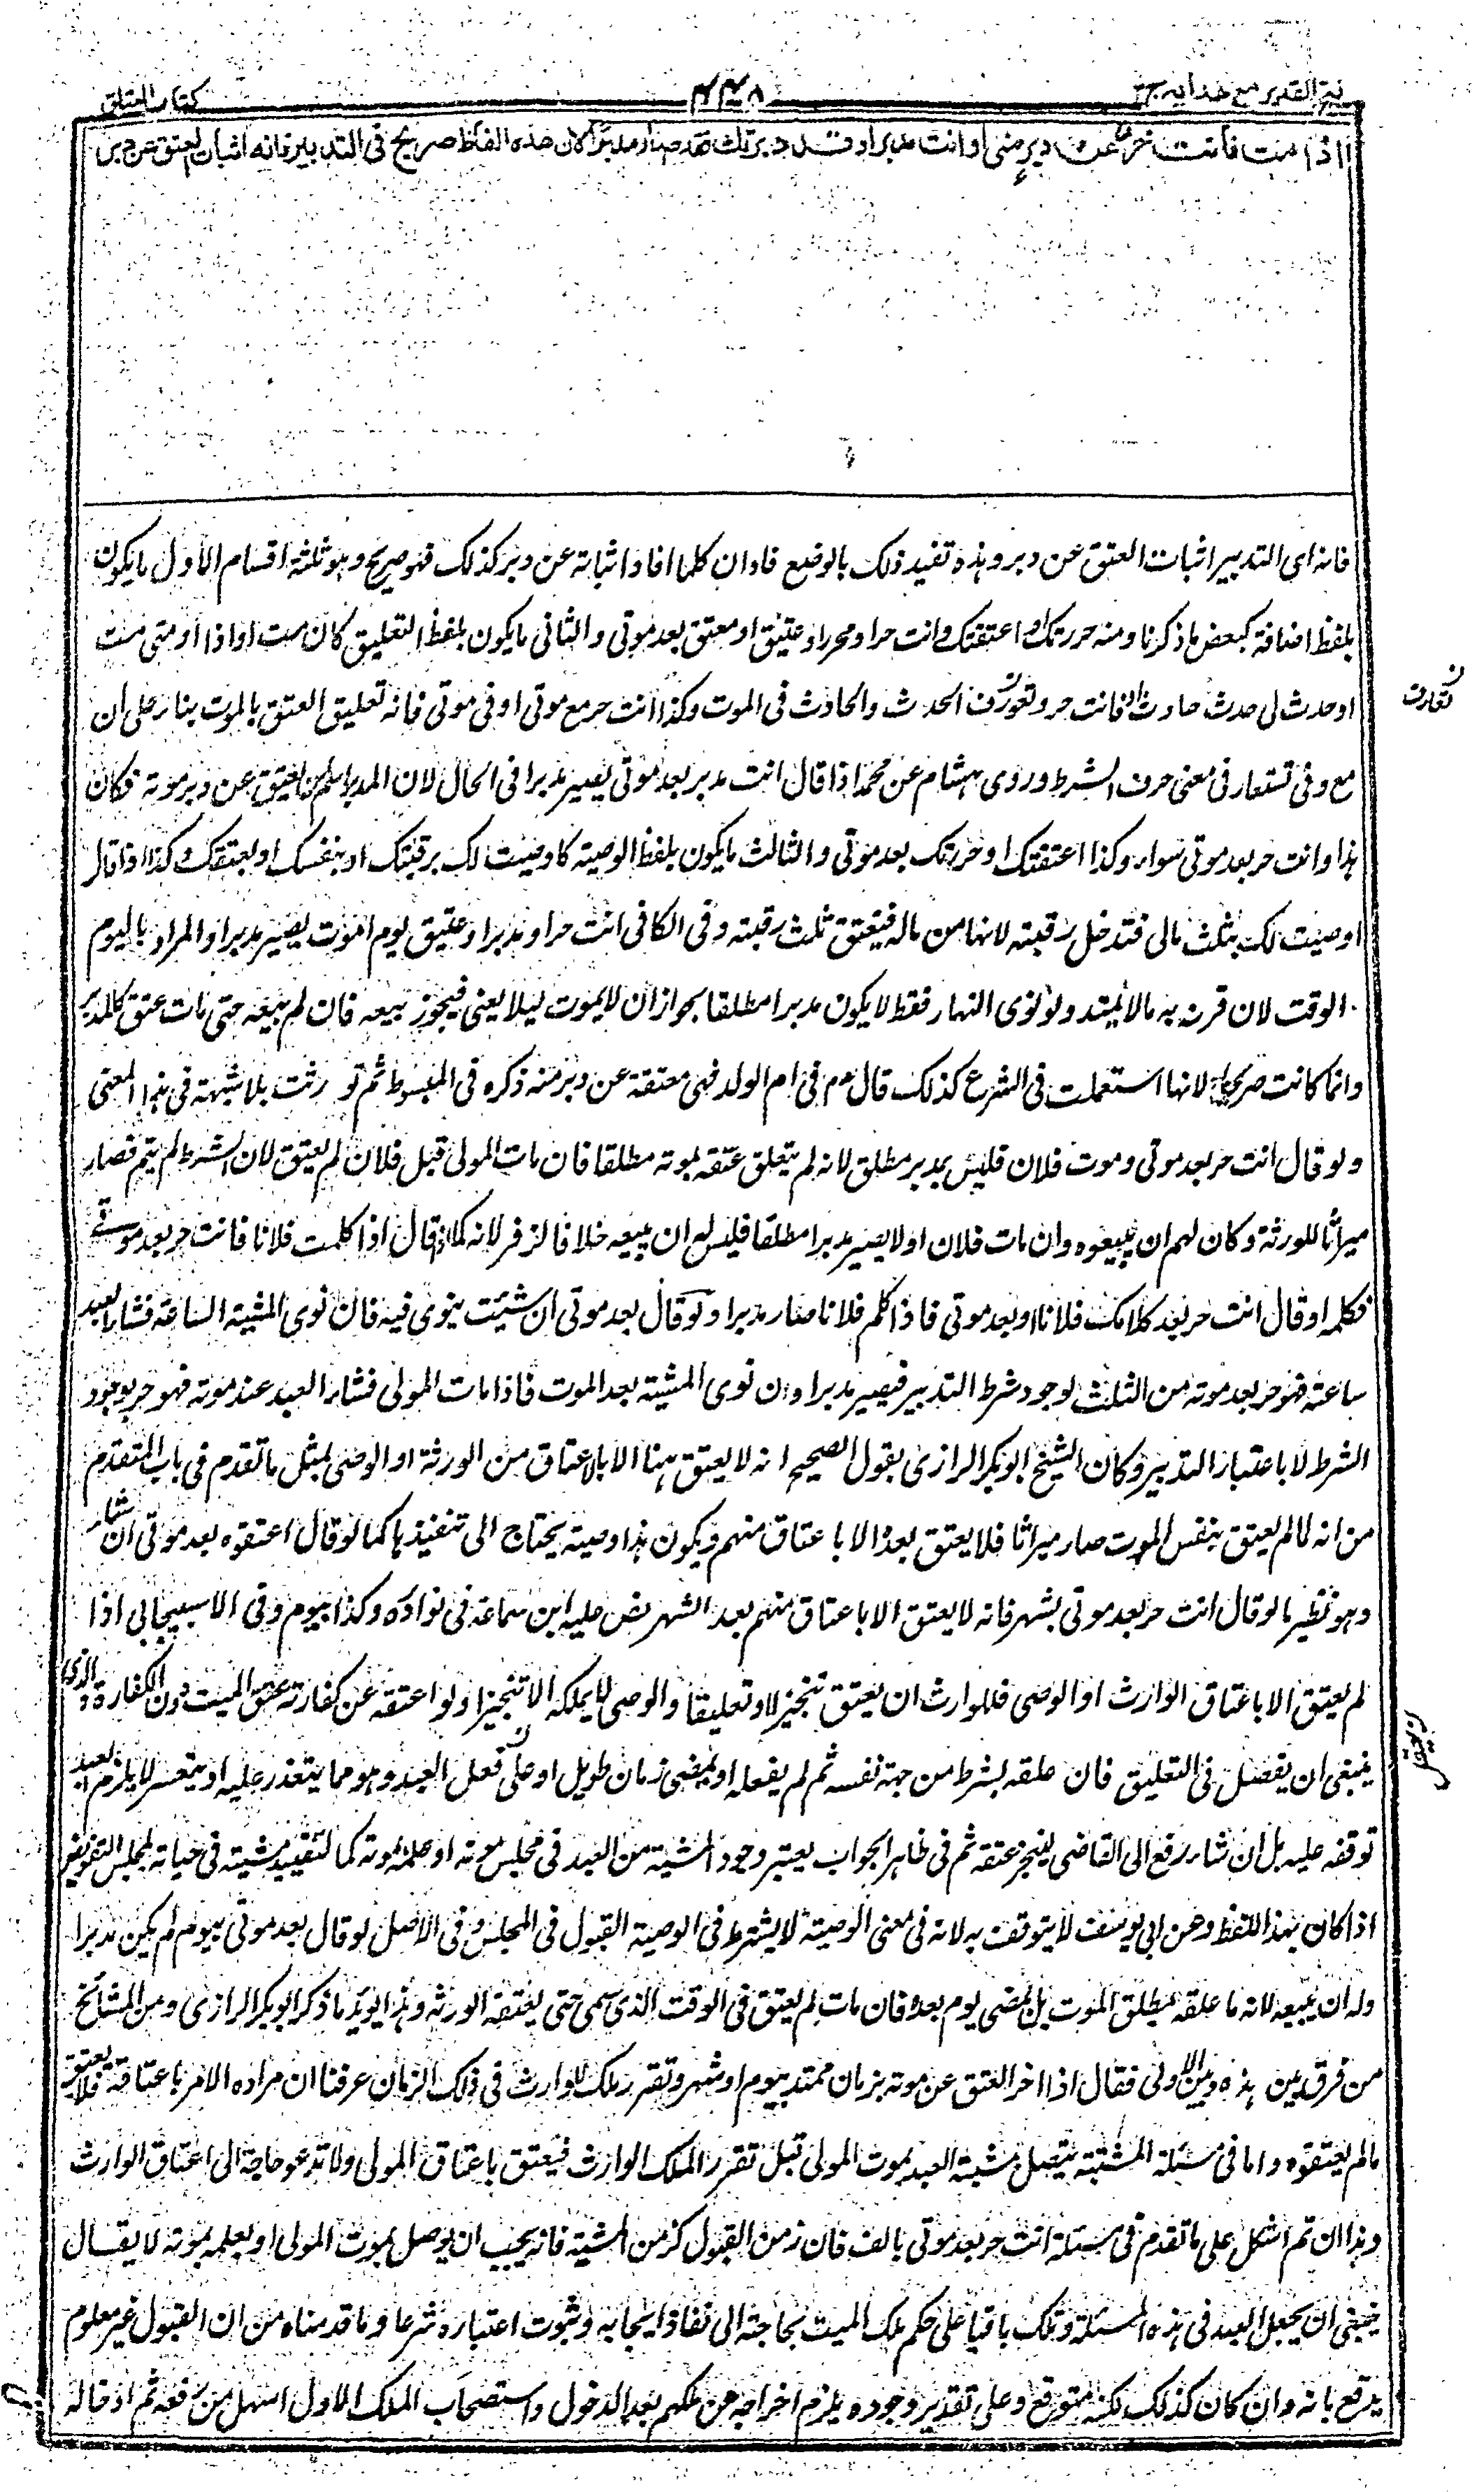 فتح القدير مع هدايه ج ٢
٤٤٨
كتاب العتاق
اذا مت فانت حر او عن دبر مني او انت مدبر او قد دبرتك فقد صار مدبرا لان هذه الفاظ صريح في التدبير فانه اثبات العتق عن دبر
فانه اى التدبير اثبات العتق عن دبر وهذه تفيد ذلك بالوضع فافاد ان كلما افاد اثباته عن دبر كذلك فهو صريح وهو ثلثة اقسام الاول ما يكون
بلفظ اضافة كبعض ما ذكرنا ومنه حررتك او اعتقتك او انت حر او محرر او عتيق او معتق بعد موتى والثانى ما يكون بلفظ التعليق كان مت او اذا او متى مت
او حدث لى حدث او حادث فانت حر وتعورف الحدث والحادث فى الموت وكذا انت حر مع موتى او فى موتى فانه تعليق العتق بالموت بناء على ان
مع وفى تستعار فى معنى حرف الشرط وروى هشام عن محمد اذا قال انت مدبر بعد موتى يصير مدبرا فى الحال لان المدبر اسم لمن يعتق عن دبر موته فكان
هذا وانت حر بعد موتى سواء وكذا اعتقتك او حررتك بعد موتى والثالث ما يكون بلفظ الوصية كاوصيت لك برقبتك او بنفسك او بعتقك وكذا اذا قال
اوصيت لك بثلث مالى فتدخل رقبته لانها من ماله فيعتق ثلث رقبته وفى الكافى انت حر او مدبر او عتيق يوم اموت يصير مدبرا والمراد باليوم
الوقت لان قرن به مالا يمتد ولو نوى النهار فقط لا يكون مدبرا مطلقا بجواز ان لا يموت ليلا يعنى فيجوز بيعه فان لم يبعه حتى مات عتق كالمدبر
وانما كانت صريحا لانها استعملت فى الشرع كذلك قال عم فى ام الولد فهى معتقة عن دبر منه ذكره فى المبسوط ثم تورثت بلا شبهة فى هذا المعنى
ولو قال انت حر بعد موتى وموت فلان فليس بمدبر مطلق لانه لم يتعلق عتقه بموته مطلقا فان مات المولى قبل فلان لم يعتق لان الشرط لم يتم فصار
ميراثا للورثة وكان لهم ان يبيعوه وان مات فلان اولا يصير مدبرا مطلقا فليس له ان يبيعه خلافا لزفر لانه كما اذا قال اذا كلمت فلانا فانت حر بعد موتى
فكلمه او قال انت حر بعد كلامك فلانا وبعد موتى فاذا كلم فلانا صار مدبرا ولو قال بعد موتى ان شئت ينوى فيه فان نوى المشية الساعة فشاء العبد
ساعته فهو حر بعد موته من الثلث لوجود شرط التدبير فيصير مدبرا وان نوى المشية بعد الموت فاذا مات المولى فشاء العبد عند موته فهو حر بوجود
الشرط لا باعتبار التدبير وكان الشيخ ابو بكر الرازى يقول الصحيح انه لا يعتق هنا الا بالاعتاق من الورثة او الوصى لمثل ما تقدم فى باب المتقدم
من انه لما لم يعتق بنفس الموت صار ميراثا فلا يعتق بعده الا باعتاق منهم ويكون هذا وصية يحتاج الى تنفيذها كما لو قال اعتقوه بعد موتى ان شاء
وهو نظير ما لو قال انت حر بعد موتى بشهر فانه لا يعتق الا باعتاق منهم بعد الشهر نص عليه ابن سماعة فى نوادره وكذا بيوم وفى الاسبيجابى اذا
لم يعتق الا باعتاق الوارث او الوصى فللوارث ان يعتق تنجيزا وتعليقا والوصى لا يملكه الا تنجيزا ولو اعتقه عن كفارته عتق عن الميت دون الكفارة والذى
ينبغى ان يفصل فى التعليق فان علقه بشرط من جهة نفسه ثم لم يفعله او بمضى زمان طويل او على فعل العبد وهو مما يتعذر عليه او يتعسر لا يلزم العبد
توقفه عليه بل ان شاء رفع الى القاضى لينجز عتقه ثم فى ظاهر الجواب يعتبر وجود المشية من العبد فى مجلس موته او علمه بموته كما تتقيد مشيته فى حياته بمجلس التفويض
اذا كان بهذا اللفظ وعن ابى يوسف لا يتوقت به لانه فى معنى الوصية ولا يشترط فى الوصية القبول فى المجلس وفى الاصل لو قال بعد موتى بيوم لم يكن مدبرا
وله ان يبيعه لانه ما علقه بمطلق الموت بل بمضى يوم بعده فان مات لم يعتق فى الوقت الذى سمى حتى يعتقه الورثة وهذا يؤيد ما ذكر ابو بكر الرازى ومن المشائخ
من فرق بين هذه وبين الاولى فقال اذا اخر العتق عن موته بزمان ممتد بيوم او شهر وتقرر ملك الوارث فى ذلك الزمان عرفنا ان مراده الامر باعتاقه فلا يعتق
ما لم يعتقوه واما فى مسئلة المشية يتصل مشية العبد بموت المولى قبل تقرر الملك الوارث فيعتق باعتاق المولى ولا تدعو حاجة الى اعتاق الوارث
وهذا ان تم اشكل على ما تقدم فى مسئلة انت حر بعد موتى بالف فان زمن القبول كزمن المشية فانه يجب ان يوصل بموت المولى او بعلمه بموته لا يقال
ينبغى ان يجعل العبد فى هذه المسئلة وتلك باقيا على حكم ملك الميت بحاجته الى نفاذ ايجابه وثبوت اعتباره شرعا وما قدمناه من ان القبول غير معلوم
يدفع بانه وان كان كذلك لكنه متوقع وعلى تقدير وجوده يلزم اخراجه عن ملكهم بعد الدخول واستصحاب الملك الاول اسهل من رفعه ثم ادخاله